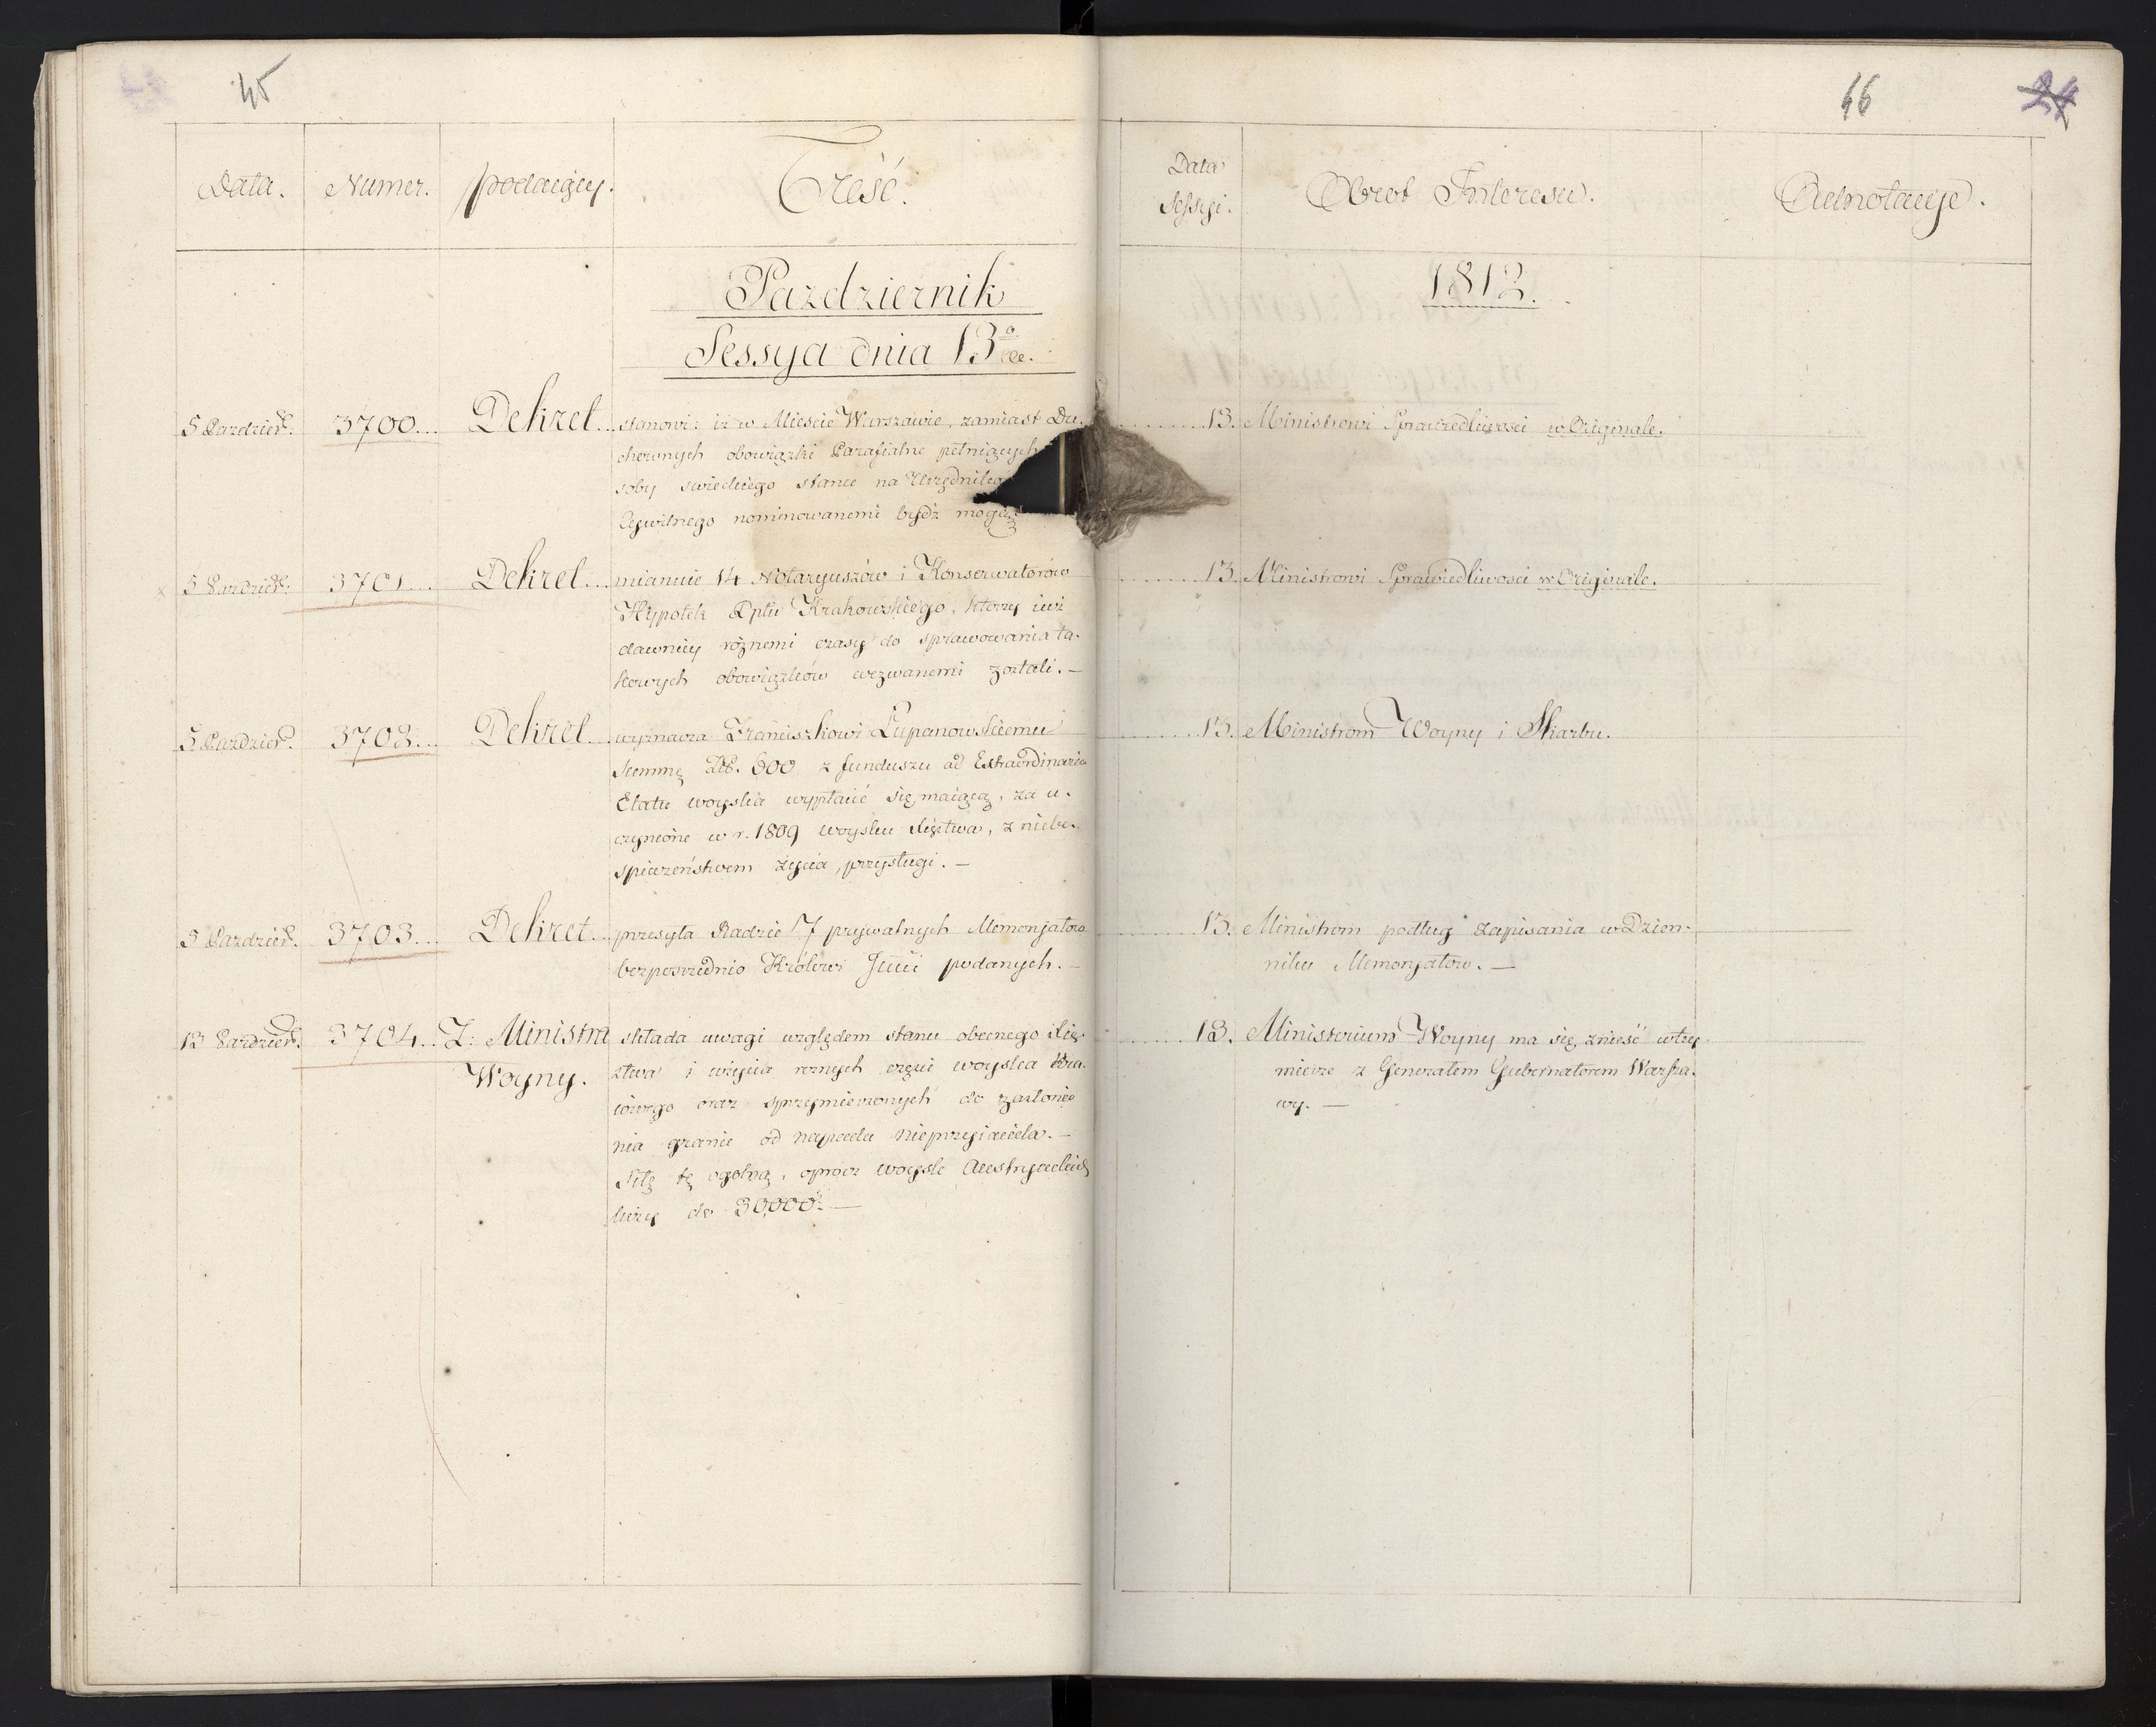 45
Data.
Numer.
podaiący.
Treść.
Pazdziernik
Sessya dnia 13º
5 Pazdzier.
3700...
Dekret...
stanowi: iż w Mieście Warszawie, zamiast Du-
chownych obowiązki Parafialne pełniących
soby swieckiego stanu na Urzędników
Cywilnego nominowanemi bydź mogą
5 Pazdzier.
3701...
Dekret...
mianuie 14 Notaryuszów i Konserwatorów
Hypotek Dptu Krakowskiego, ktorzy iuż
dawniey różnemi czasy do sprawowania ta-
kowych obowiązków wezwanemi zostali. —
5 Pazdzier.
3702...
Dekret...
wyznacza Franciszkowi Łupanowskiemu
Summę Zł. 600 z funduszu ad Extraordinaria
Etatu woyska wypłacić się maiącą, za u-
czynione w r. 1809 woysku Xięstwa, z niebe-
spieczeństwem życia, przysługi. —
5 Pazdzier.
3703...
Dekret...
przesyła Radzie 7 prywatnych Memoryałow
bezposrednio Królowi Jmci podanych. —
13 Pazdzier.
3704..
Z: Ministra
Woyny.
składa uwagi względem stanu obecnego Xię-
ztwa i użycia rożnych części woyska Kra-
iowego oraz sprzymierzonych do zasłonie-
nia granic od napadu nieprzyiaciela. —
Siłę tę ogolną, oprocz woysk Austryackich
liczy do 30,000. —
46
24
Data
Sessyi.
Obrot Interesu.
Adnotacye.
1812.
13. Ministrowi Sprawiedliwości w Originale.
13. Ministrowi Sprawiedliwości w Originale.
13. Ministrom Woyny i Skarbu.
13. Ministrom podług zapisania w Dzien-
niku Memoryałow. —
13. Ministerium Woyny ma się znieść wtey
mierze z Generałem Gubernatorem Warsza-
wy. —